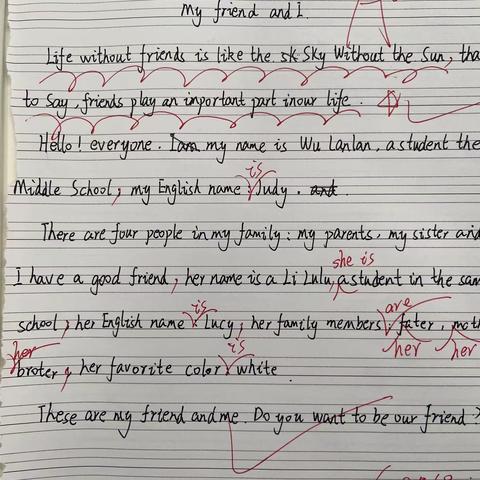 My friend and I.
Life without friends is like the sk Sky Without the Sun, tha
to say, friends play an important part in our life.
Hello! everyone. I am my name is Wu Lanlan, a student the
is
Middle School, my English name: Judy. and.
There are four people in my family: my parents, my sister and
she is
I have a good friend, her name is a Li Lulu, a student in the sam
is are
school, her English name: Lucy, her family members: fater, mot
her is her her
broter, her favorite color white.
These are my friend and me. Do you want to be our friend?